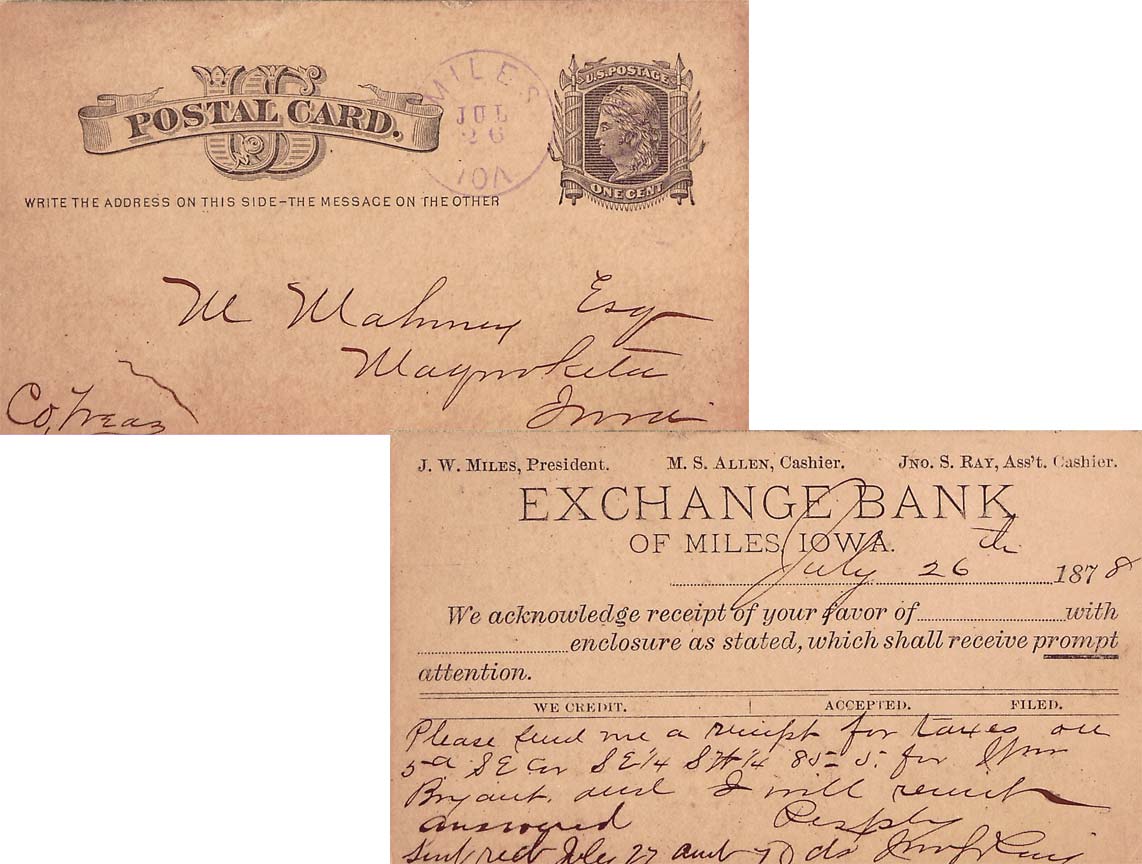 U S
POSTAL CARD.
WRITE THE ADDRESS ON THIS SIDE–THE MESSAGE ON THE OTHER
MILES
JUL
26
IOA
U.S. POSTAGE
ONE CENT
M Mahoney Esq
Maquoketa
Iowa
Co, Treas
J. W. MILES, President. M. S. ALLEN, Cashier. JNO. S. RAY, Ass't. Cashier.
EXCHANGE BANK
OF MILES, IOWA.
July 26th 1878
We acknowledge receipt of your favor of with
enclosure as stated, which shall receive prompt
attention.
WE CREDIT. ACCEPTED. FILED.
Please send me a receipt for taxes on
5a SE Cor SE 1/4 SW 1/4 85 5. for Wm
Bryant. and I will remit
answered Resply
Sent rect July 27 amt